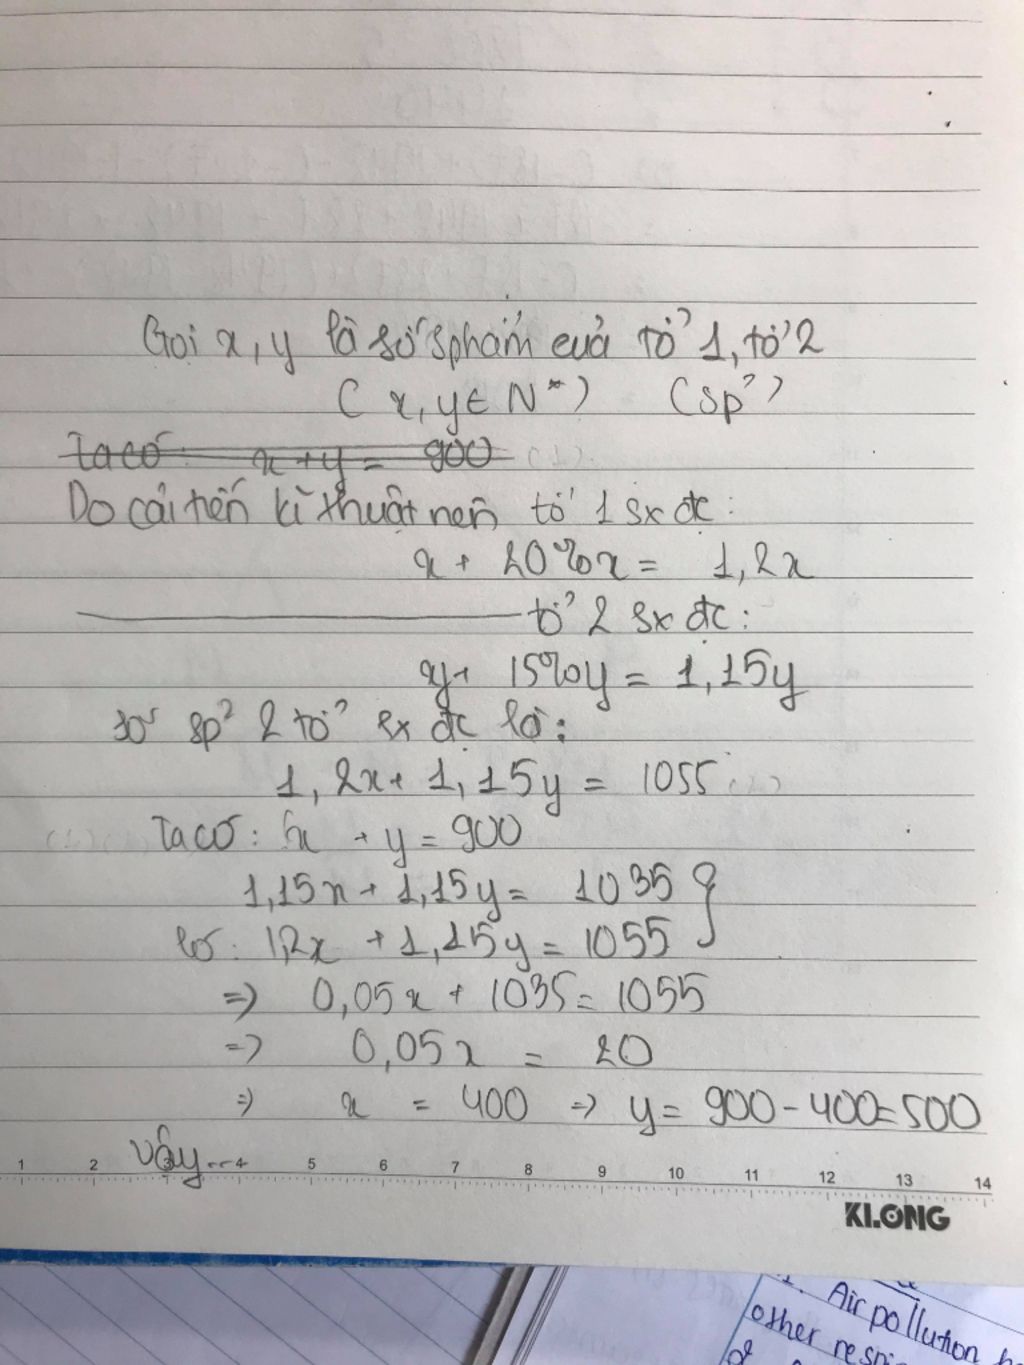 Gọi x, y là số sphẩm của tổ 1, tổ 2
( x, y ∈ N*) (sp²)
Ta có: x + y = 900 (1)
Do cải tiến kĩ thuật nên tổ 1 sx đc:
x + 20%x = 1,2x
tổ 2 sx đc:
y + 15%y = 1,15y
số sp² 2 tổ sx đc là:
1,2x + 1,15y = 1055
Ta có: x + y = 900
1,15x + 1,15y = 1035 }
1,2x + 1,15y = 1055
=> 0,05x + 1035 = 1055
=> 0,05x = 20
=> x = 400 => y = 900 - 400 = 500
Vậy...
1 2 3 4 5 6 7 8 9 10 11 12 13 14
KLONG
1. Air pollution
other